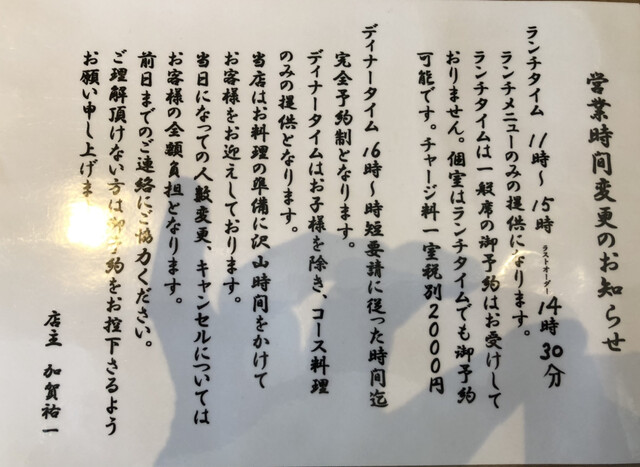 営業時間変更のお知らせ
ランチタイム 11時〜15時 ラストオーダー 14時30分
ランチメニューのみの提供になります。
ランチタイムは一般席の御予約はお受けして
おりません。個室はランチタイムでも御予約
可能です。チャージ料一室税別2000円
ディナータイム 16時〜時短要請に従った時間迄
完全予約制となります。
ディナータイムはお子様を除き、コース料理
のみの提供となります。
当店はお料理の準備に沢山時間をかけて
お客様をお迎えしております。
当日になっての人数変更、キャンセルについては
お客様の全額負担となります。
前日までのご連絡にご協力ください。
ご理解頂けない方は御予約をお控下さるよう
お願い申し上げま
店主 加賀祐一